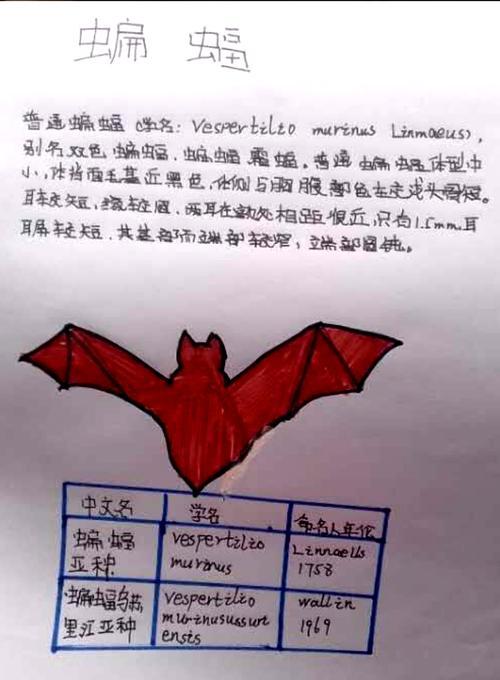 蝙 蝠
普通蝙蝠(学名: Vespertilio murinus Linnaeus),
别名双色蝙蝠、蝙蝠霜蝠。普通蝙蝠体型中
小,体背面毛基近黑色,体侧与胸腹部色
耳较短,较宽圆,两耳在处相距很近,只有1.5mm.耳
屏较短,其基部而端部较窄,端部圆钝。
中文名 学名 命名人年代
蝙蝠亚种 vespertilio murinus Linnaeus 1758
蝙蝠乌苏里江亚种 vespertilio murinusussuriensis wallin 1969